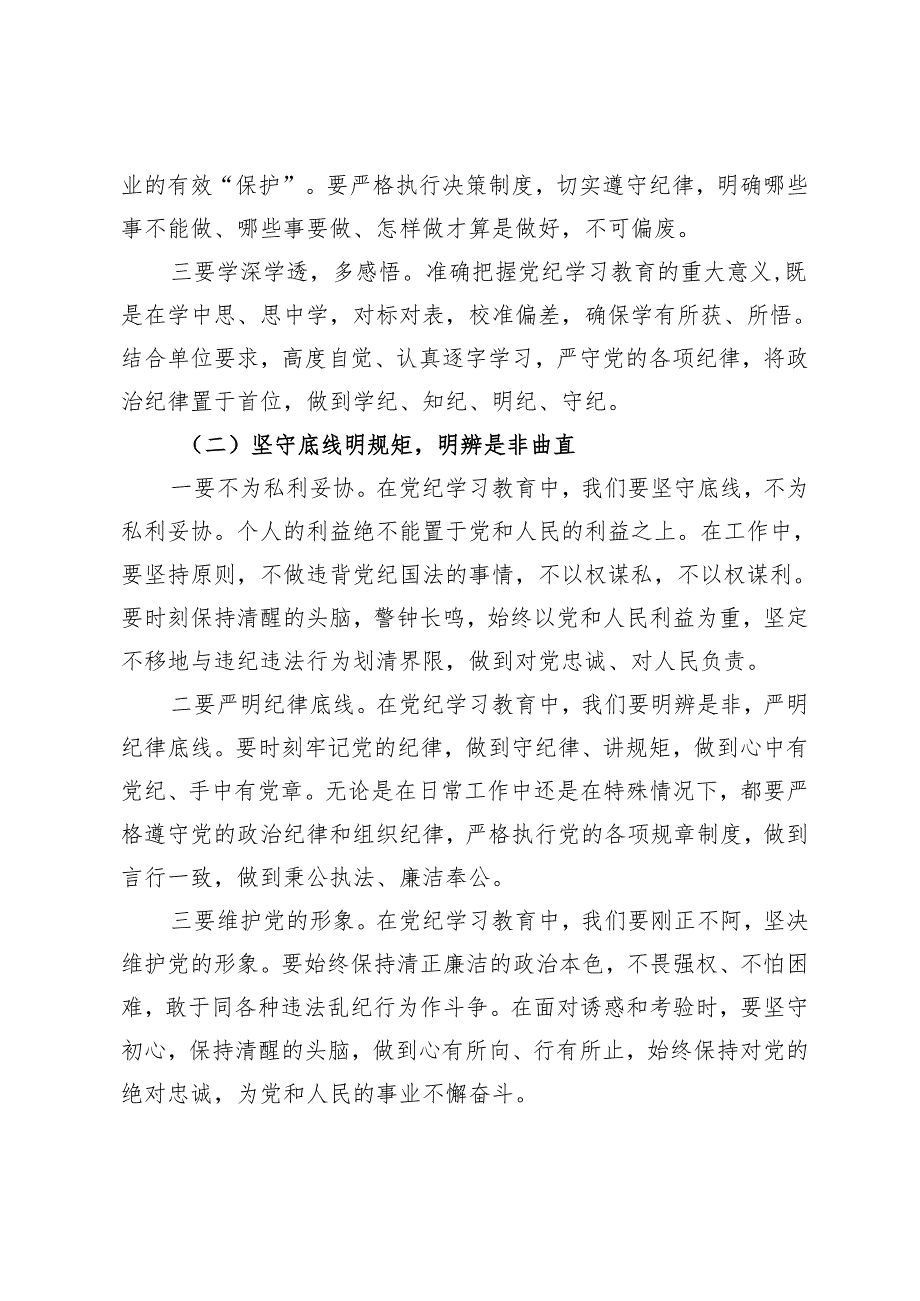 业的有效“保护”。要严格执行决策制度，切实遵守纪律，明确哪些
事不能做、哪些事要做、怎样做才算是做好，不可偏废。
三要学深学透，多感悟。准确把握党纪学习教育的重大意义,既
是在学中思、思中学，对标对表，校准偏差，确保学有所获、所悟。
结合单位要求，高度自觉、认真逐字学习，严守党的各项纪律，将政
治纪律置于首位，做到学纪、知纪、明纪、守纪。
（二）坚守底线明规矩，明辨是非曲直
一要不为私利妥协。在党纪学习教育中，我们要坚守底线，不为
私利妥协。个人的利益绝不能置于党和人民的利益之上。在工作中，
要坚持原则，不做违背党纪国法的事情，不以权谋私，不以权谋利。
要时刻保持清醒的头脑，警钟长鸣，始终以党和人民利益为重，坚定
不移地与违纪违法行为划清界限，做到对党忠诚、对人民负责。
二要严明纪律底线。在党纪学习教育中，我们要明辨是非，严明
纪律底线。要时刻牢记党的纪律，做到守纪律、讲规矩，做到心中有
党纪、手中有党章。无论是在日常工作中还是在特殊情况下，都要严
格遵守党的政治纪律和组织纪律，严格执行党的各项规章制度，做到
言行一致，做到秉公执法、廉洁奉公。
三要维护党的形象。在党纪学习教育中，我们要刚正不阿，坚决
维护党的形象。要始终保持清正廉洁的政治本色，不畏强权、不怕困
难，敢于同各种违法乱纪行为作斗争。在面对诱惑和考验时，要坚守
初心，保持清醒的头脑，做到心有所向、行有所止，始终保持对党的
绝对忠诚，为党和人民的事业不懈奋斗。